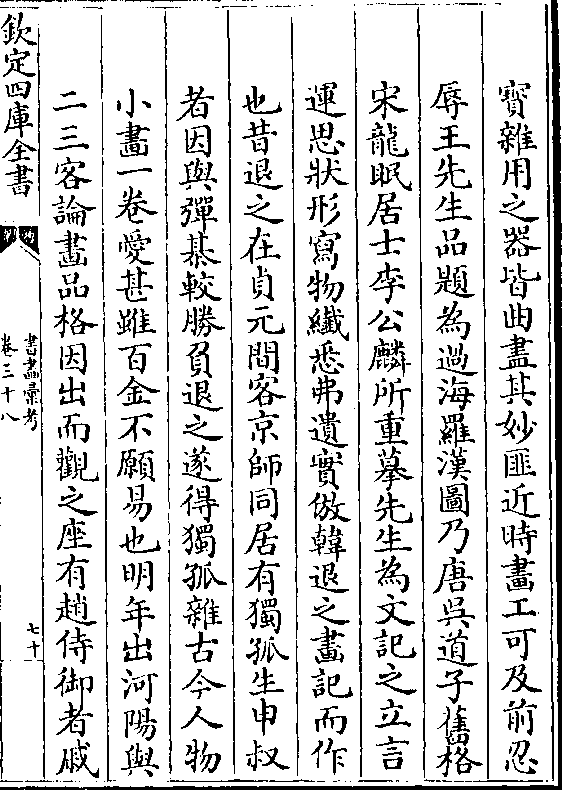 寳雜用之器皆曲盡其妙匪近時畫工可及前忍
辱王先生品題為過海羅漢圖乃唐吳道子舊格
宋龍眠居士李公麟所重摹先生為文記之立言
運思狀形寫物纖悉弗遺實倣韓退之畫記而作
也昔退之在貞元間客京師同居有獨孤生申叔
者因與彈棊較勝負退之遂得獨孤雜古今人物
小畫一卷愛甚雖百金不願易也明年出河陽與
二三客論畫品格因出而觀之座有趙侍御者戚
欽定四庫全書
書畫彙考
卷三十八
七十